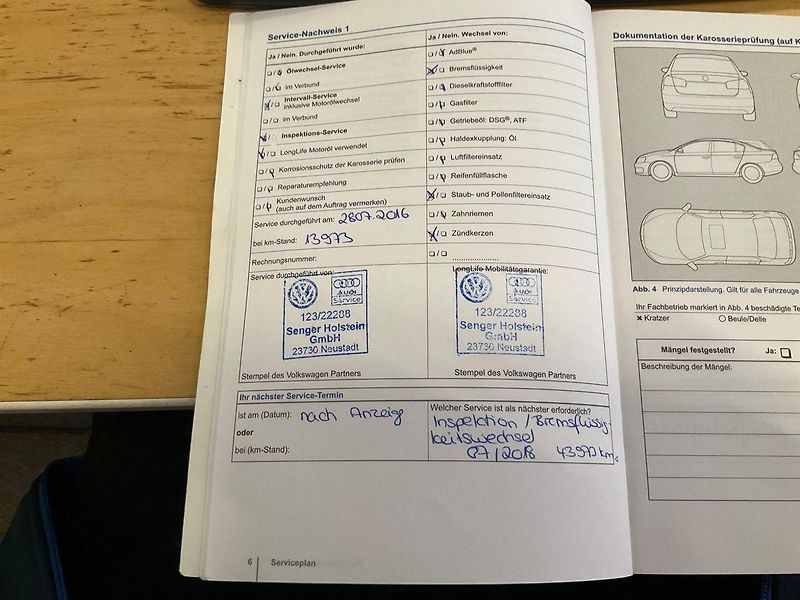 Service-Nachweis 1
Ja / Nein. Durchgeführt wurde:
Ölwechsel-Service
im Verbund
Intervall-Service
inklusive Motorölwechsel
im Verbund
Inspektions-Service
LongLife Motoröl verwendet
Korrosionsschutz der Karosserie prüfen
Reparaturempfehlung
Kundenwunsch
(auch auf dem Auftrag vermerken)
Service durchgeführt am: 28.07.2016
bei km-Stand: 13973
Rechnungsnummer:
Service durchgeführt von:
Audi
Service
123/22288
Senger Holstein
GmbH
23730 Neustadt
Stempel des Volkswagen Partners
Ja / Nein. Wechsel von:
AdBlue®
Bremsflüssigkeit
Dieselkraftstofffilter
Gasfilter
Getriebeöl: DSG®, ATF
Haldexkupplung: Öl
Luftfiltereinsatz
Reifenfüllflasche
Staub- und Pollenfiltereinsatz
Zahnriemen
Zündkerzen
LongLife Mobilitätsgarantie:
Audi
Service
123/22288
Senger Holstein
GmbH
23730 Neustadt
Stempel des Volkswagen Partners
Ihr nächster Service-Termin
ist am (Datum): nach Anzeige
oder
bei (km-Stand):
Welcher Service ist als nächster erforderlich?
Inspektion / Bremsflüssig-
keitswechsel
07/2018 43973 km
6 Serviceplan
Dokumentation der Karosserieprüfung (auf K
Abb. 4 Prinzipdarstellung. Gilt für alle Fahrzeuge
Ihr Fachbetrieb markiert in Abb. 4 beschädigte Te
× Kratzer
Beule/Delle
Mängel festgestellt? Ja:
Beschreibung der Mängel: